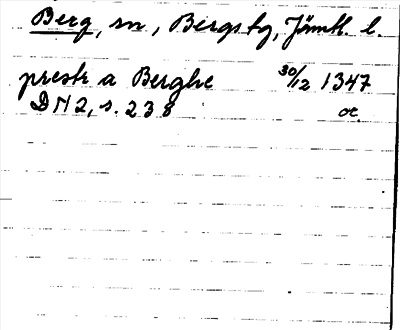 Berg, sn, Bergs tg, Jämtl. l.
prestr a Berghe 30/12 1347
DN 2, s. 238 or.